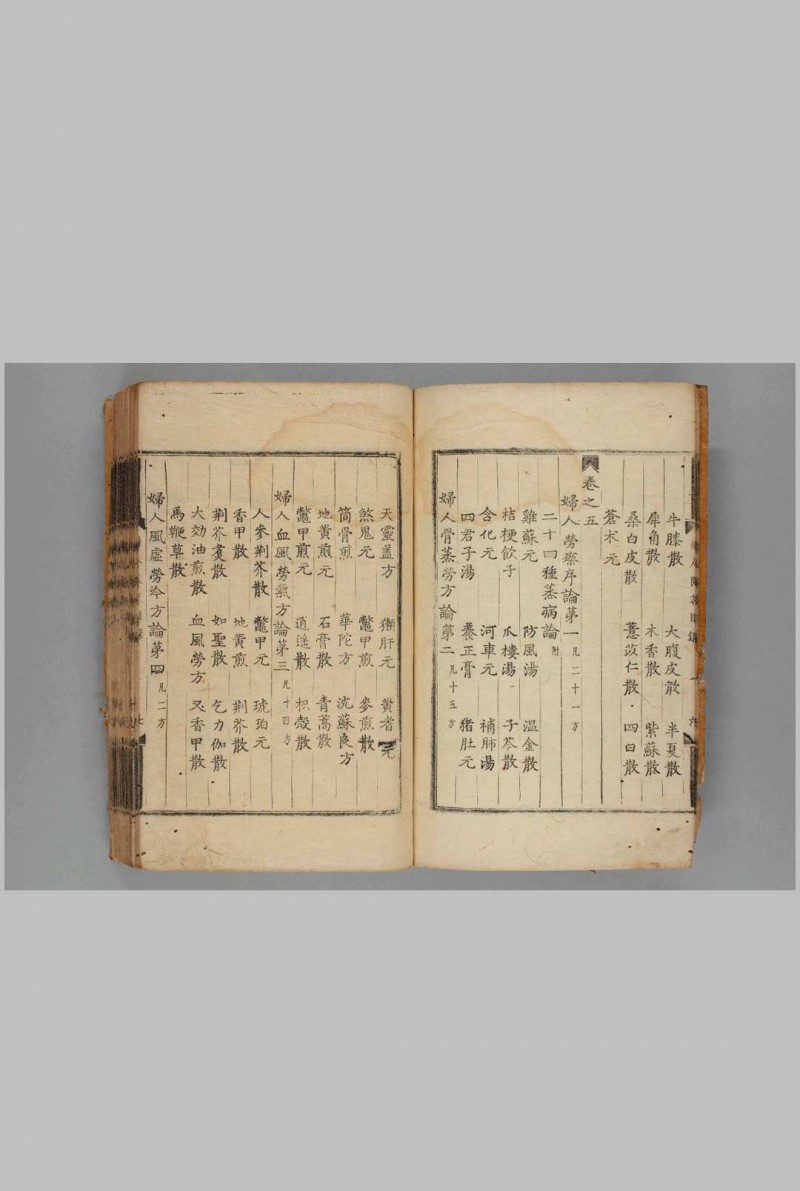 牛膝散 大腹皮散 半夏散
犀角散 木香散 紫蘇散
桑白皮散 薏苡仁散 四白散
蒼朮元
卷之五
婦人勞瘵序論第一 凡二十一方
二十四種蒸病論 附
雞蘇元 防風湯 温金散
桔梗飲子 瓜樓湯 子芩散
含化元 河車元 補肺湯
四君子湯 養正膏 猪肚元
婦人骨蒸勞方論第二 凡十五方
天靈盖方 獺肝元 黄耆元
煞鬼元 鱉甲煎 麥煎散
筒骨煎 華陀方 沈蘇良方
地黄煎元 石膏散 青蒿散
鱉甲煎元 逍遥散 枳殻散
婦人血風勞氣方論第三 凡十四方
人參荆芥散 鱉甲元 琥珀元
香甲散 地黄煎 荆芥散
荆芥䕫散 如聖散 乞力伽散
大効油煎散 血風勞方 又香甲散
馬鞭草散
婦人風虚勞冷方論第四 凡二方